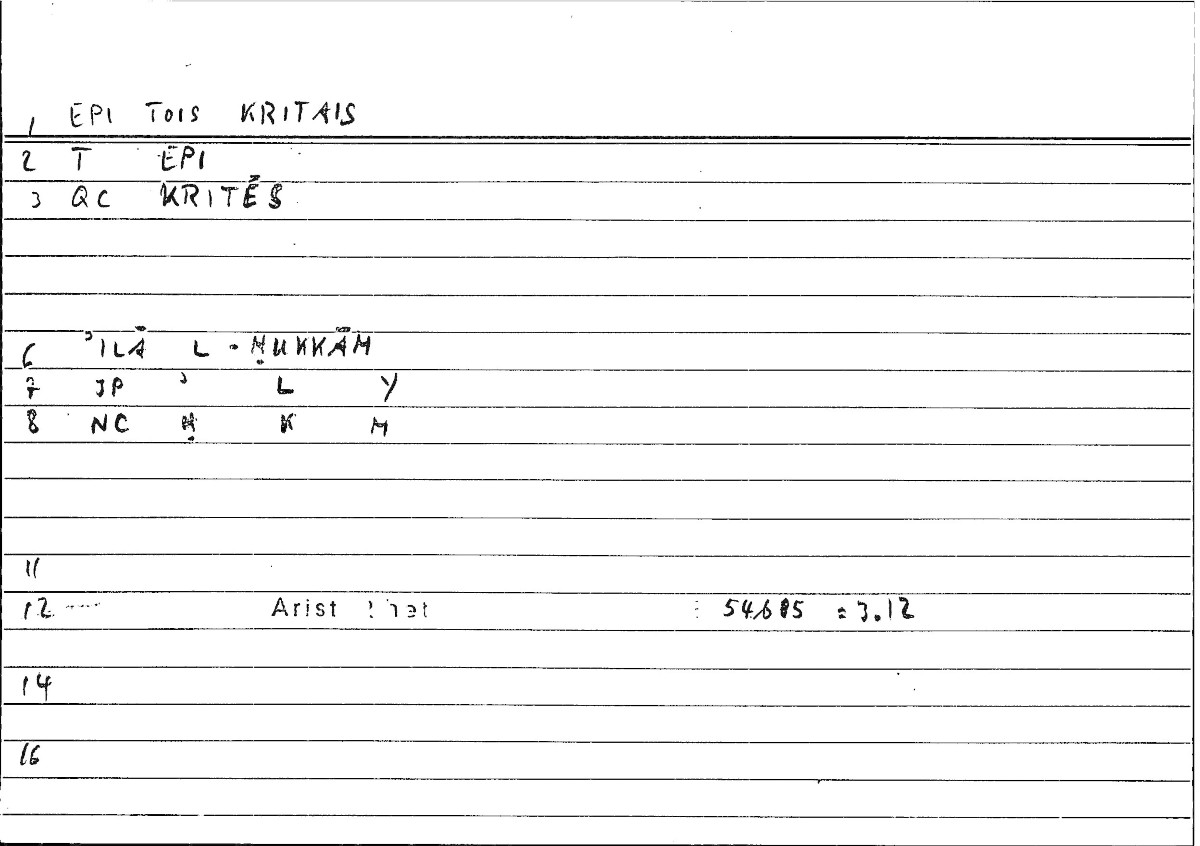 1 EPI TOIS KRITAIS
2 T EPI
3 QC KRITĒS
6 ʾILĀ L-ḤUKKĀM
7 JP ʾ L Y
8 NC Ḥ K M
11
12 Arist : =3.12
14
16